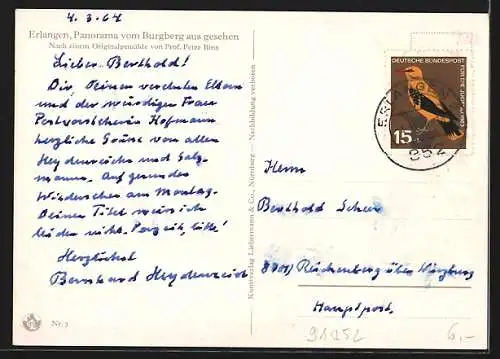 4.3.64
Erlangen, Panorama vom Burgberg aus gesehen
Nach einem Originalgemälde von Prof. Peter Bina
Lieber Berthold!
Dir, Deinen verehrten Eltern
und der würdigen Frau
Postvorsteherin Hofmann
herzliche Grüße von allen
Heydenreichs und Salz-
manns. Auf gesundes
Wiedersehen am Montag.
Deinen Titel weiss ich
leider nicht. Verzeih, bitte!
Herzlichst
Bernhard Heydenreich
Nr. 3
Kunstverlag Liebermann & Co., Nürnberg — Nachbildung verboten
DEUTSCHE BUNDESPOST
FÜR DIE JUGEND 1963
15
ERLANGEN
852
Herrn
Berthold Scheer
8701 Reichenberg über Würzburg
Hauptpost.
91052
6,-